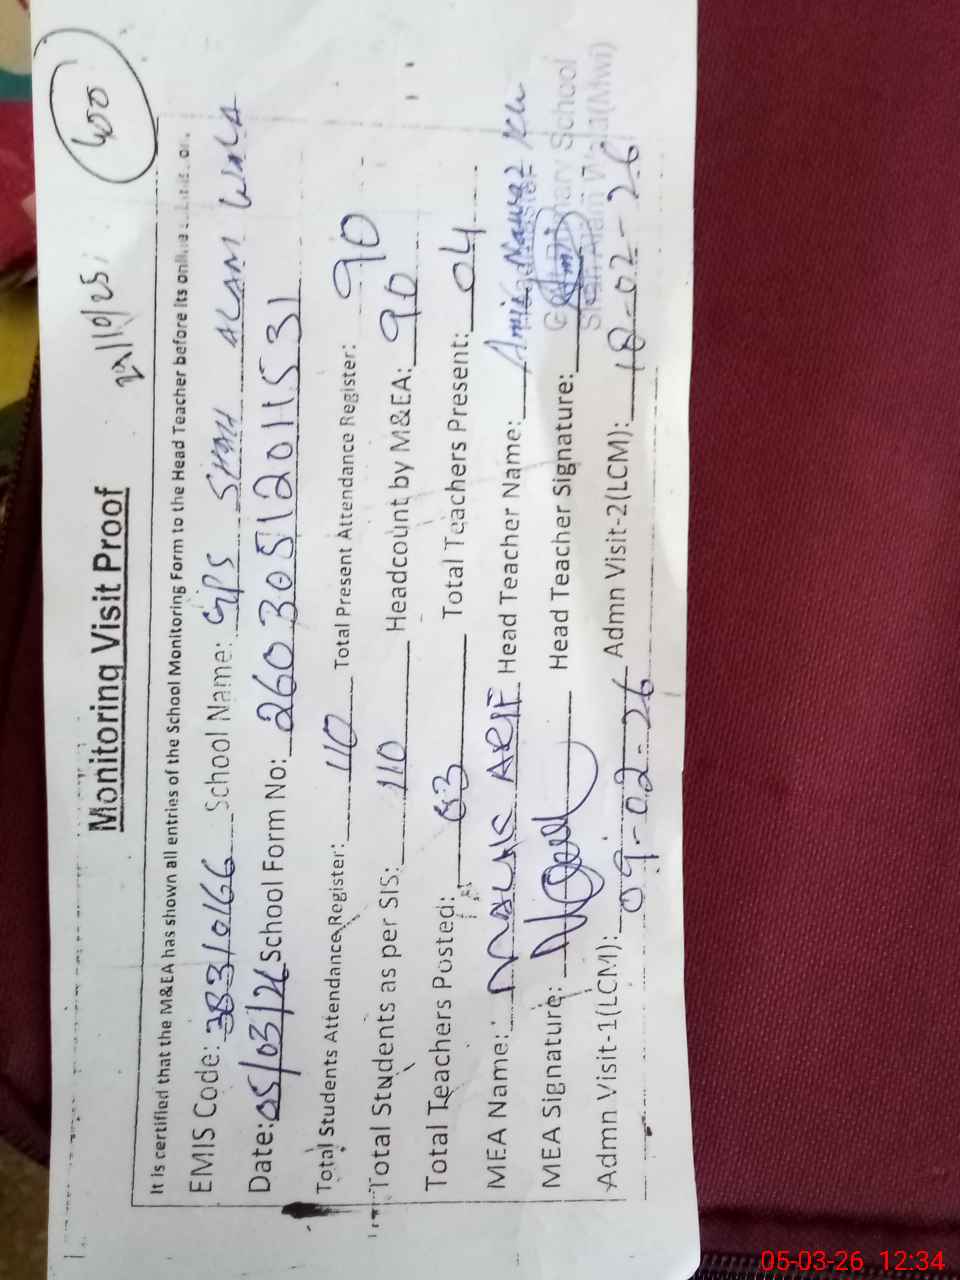 400
Monitoring Visit Proof
It is certified that the M&EA has shown all entries of the School Monitoring Form to the Head Teacher before its online
EMIS Code: 38310166 School Name: GPS SHAH ALAM WALA
Date: 05/03/26 School Form No: 26030512011531
Total Students Attendance Register: 110 Total Present Attendance Register: 90
Total Students as per SIS: 110 Headcount by M&EA: 90
Total Teachers Posted: 03 Total Teachers Present: 04
MEA Name: MALIK ARIF Head Teacher Name: Amir Nawaz
MEA Signature: Head Teacher Signature:
Primary School
Shah Alam Wala (Mwi)
Admn Visit-1(LCM): 09-02-26 Admn Visit-2(LCM): 18-02-26
05-03-26 12:34